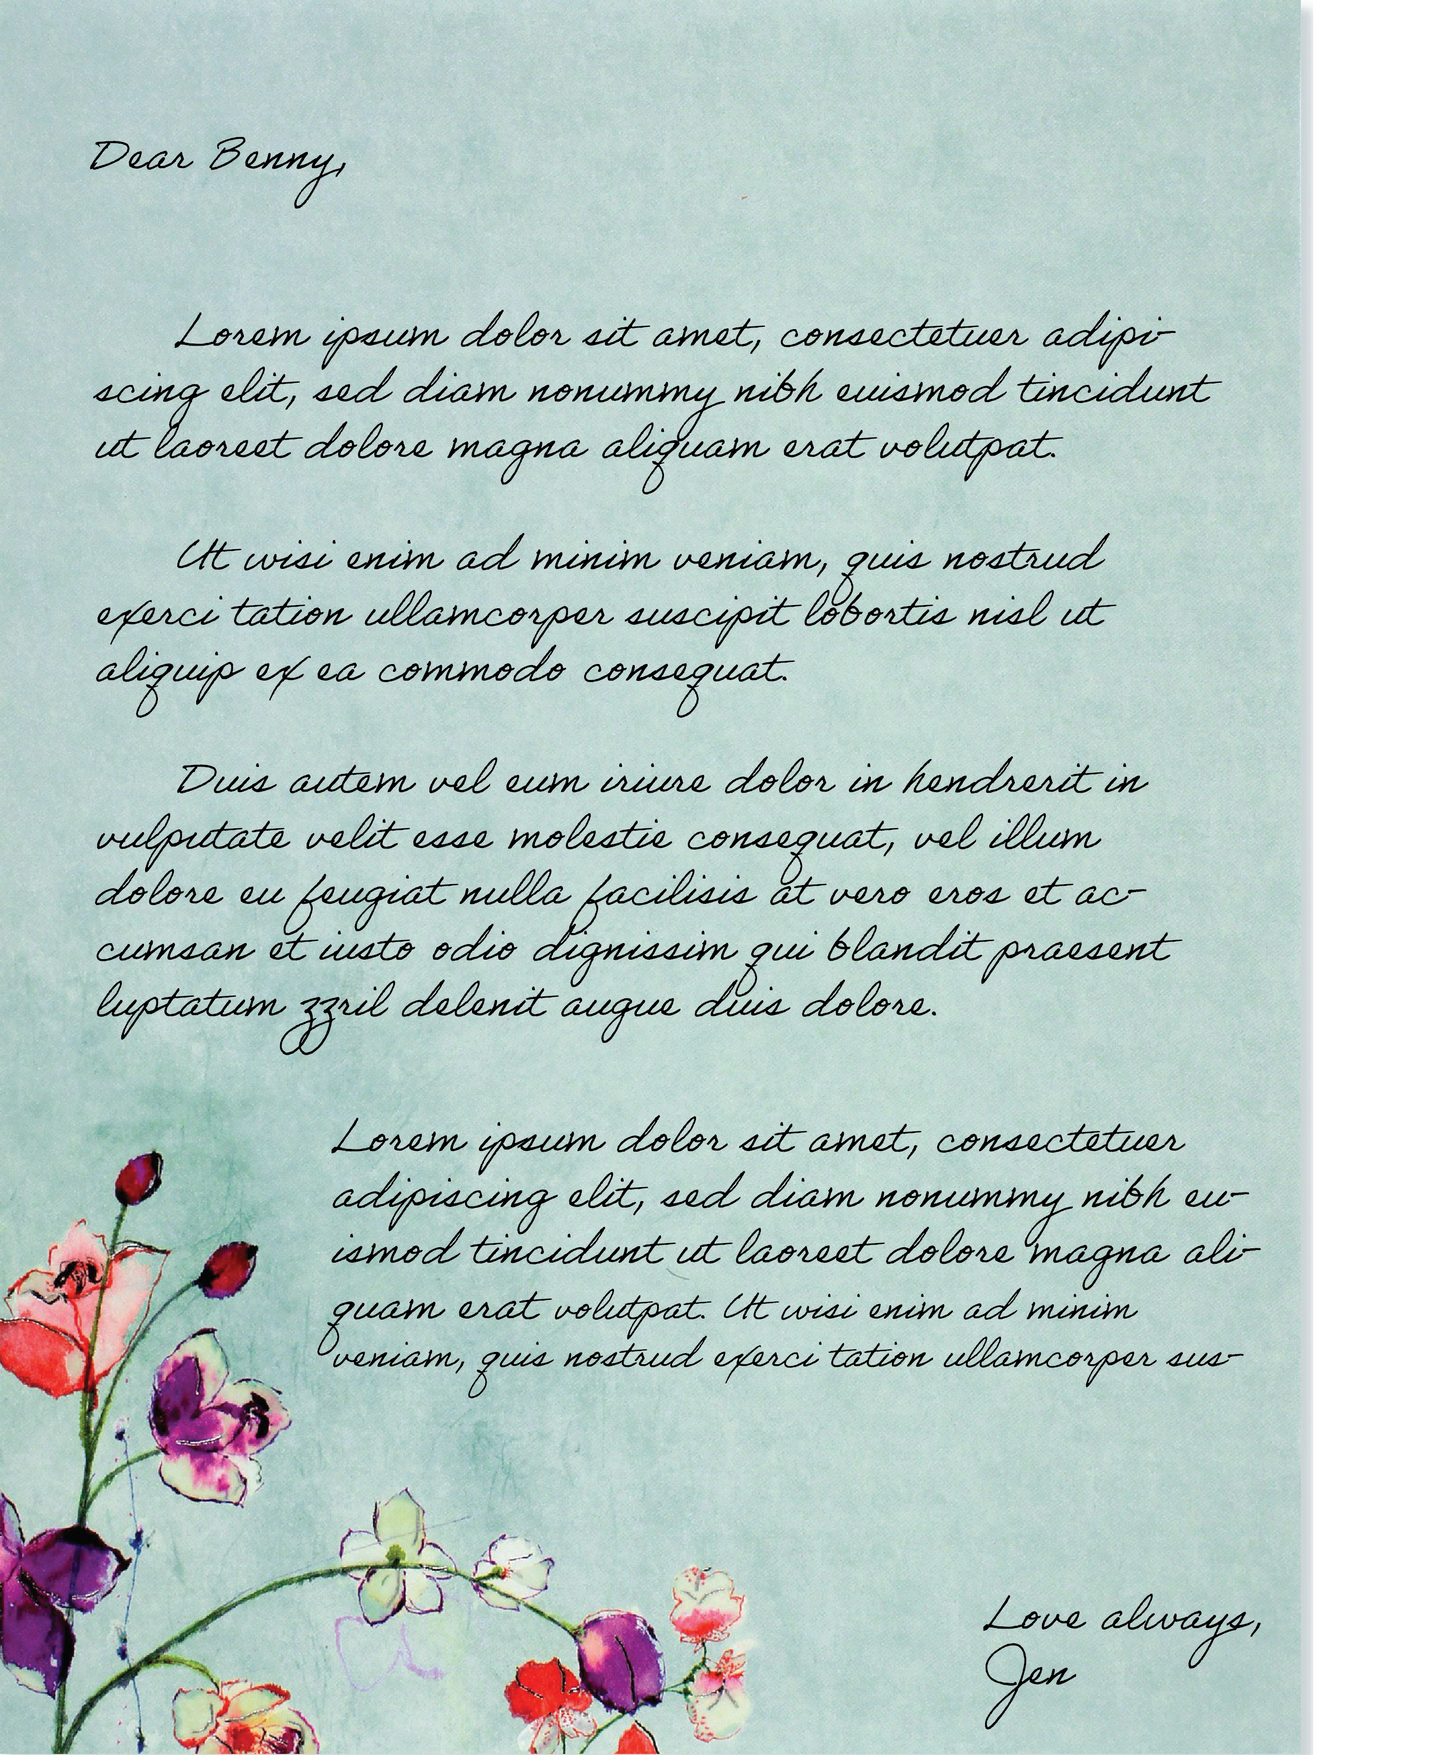 Dear Benny,
Lorem ipsum dolor sit amet, consectetuer adipi-
scing elit, sed diam nonummy nibh euismod tincidunt
ut laoreet dolore magna aliquam erat volutpat.
Ut wisi enim ad minim veniam, quis nostrud
exerci tation ullamcorper suscipit lobortis nisl ut
aliquip ex ea commodo consequat.
Duis autem vel eum iriure dolor in hendrerit in
vulputate velit esse molestie consequat, vel illum
dolore eu feugiat nulla facilisis at vero eros et ac-
cumsan et iusto odio dignissim qui blandit praesent
luptatum zzril delenit augue duis dolore.
Lorem ipsum dolor sit amet, consectetuer
adipiscing elit, sed diam nonummy nibh eu-
ismod tincidunt ut laoreet dolore magna ali-
quam erat volutpat. Ut wisi enim ad minim
veniam, quis nostrud exerci tation ullamcorper sus-
Love always,
Jen